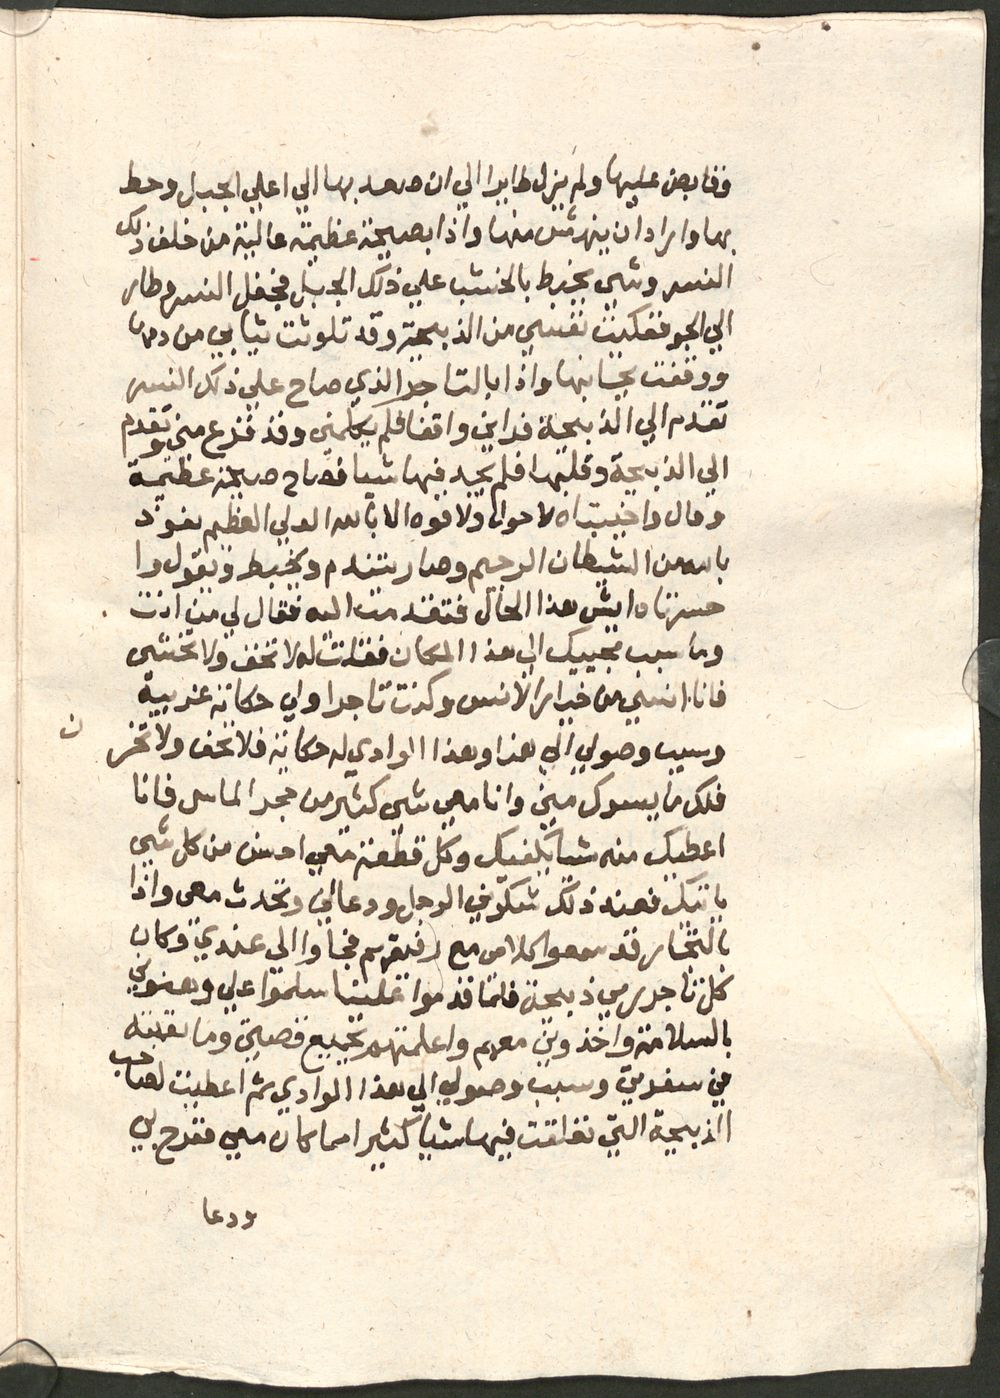 وقابض عليها ولم يزل طايرا الي ان صعد بها الي اعلي الجبل وحط
بها واراد ان ينهش منها واذا بصيحة عظيمة عالية من خلف ذلك
النسر وشي يخبط بالخشب علي ذلك الجبل فجفل النسر وطار
الي الجو ففكيت نفسي من الذبيحة وقد تلوثت ثيابي من دمها
ووقفت بجانبها واذا بالتاجر الذي صاح علي ذلك النسر
تقدم الي الذبيحة فراني واقفا فلم يكلمني وقد فزع مني وتقدم
الي الذبيحة وقلبها فلم يجد فيها شيا فصاح صيحة عظيمة
وقال واخيبتاه لا حول ولا قوه الا بالله العلي العظيم نعوذ
بالله من الشيطان الرجيم وصار يتندم ويخبط ويقول وا
حسرتاه ايش هذا الحال فتقدمت اليه فقال لي من انت
وما سبب مجييك الي هذا المكان فقلت له لا تخف ولا تخشي
فانا انسي من خيار الانس وكنت تاجرا ولي حكاية غريبة
وسبب وصولي الي هذا وهذا الوادي له حكاية فلا تخف ولا تحز
ن
فلك ما يسرك مني وانا معي شي كثير من حجر الماس فانا
اعطيك منه شيا يكفيك وكل قطعة معي احسن من كل شي
ياتيك فعند ذلك شكرني الرجل ودعا لي وتحدث معي واذا
بالتجار قد سمعوا كلامي مع رفيقهم فجاوا الي عندي وكان
كل تاجر رمي ذبيحة فلما قدموا علينا سلموا علي وهنوني
بالسلامة واخذوني معهم واعلمتهم بجميع قصتي وما لقيته
في سفرتي وسبب وصولي الي هذا الوادي ثم اعطيت لصاحب
الذبيحة التي تعلقت فيها شيا كثيرا مما كان معي ففرح بي
ودعا